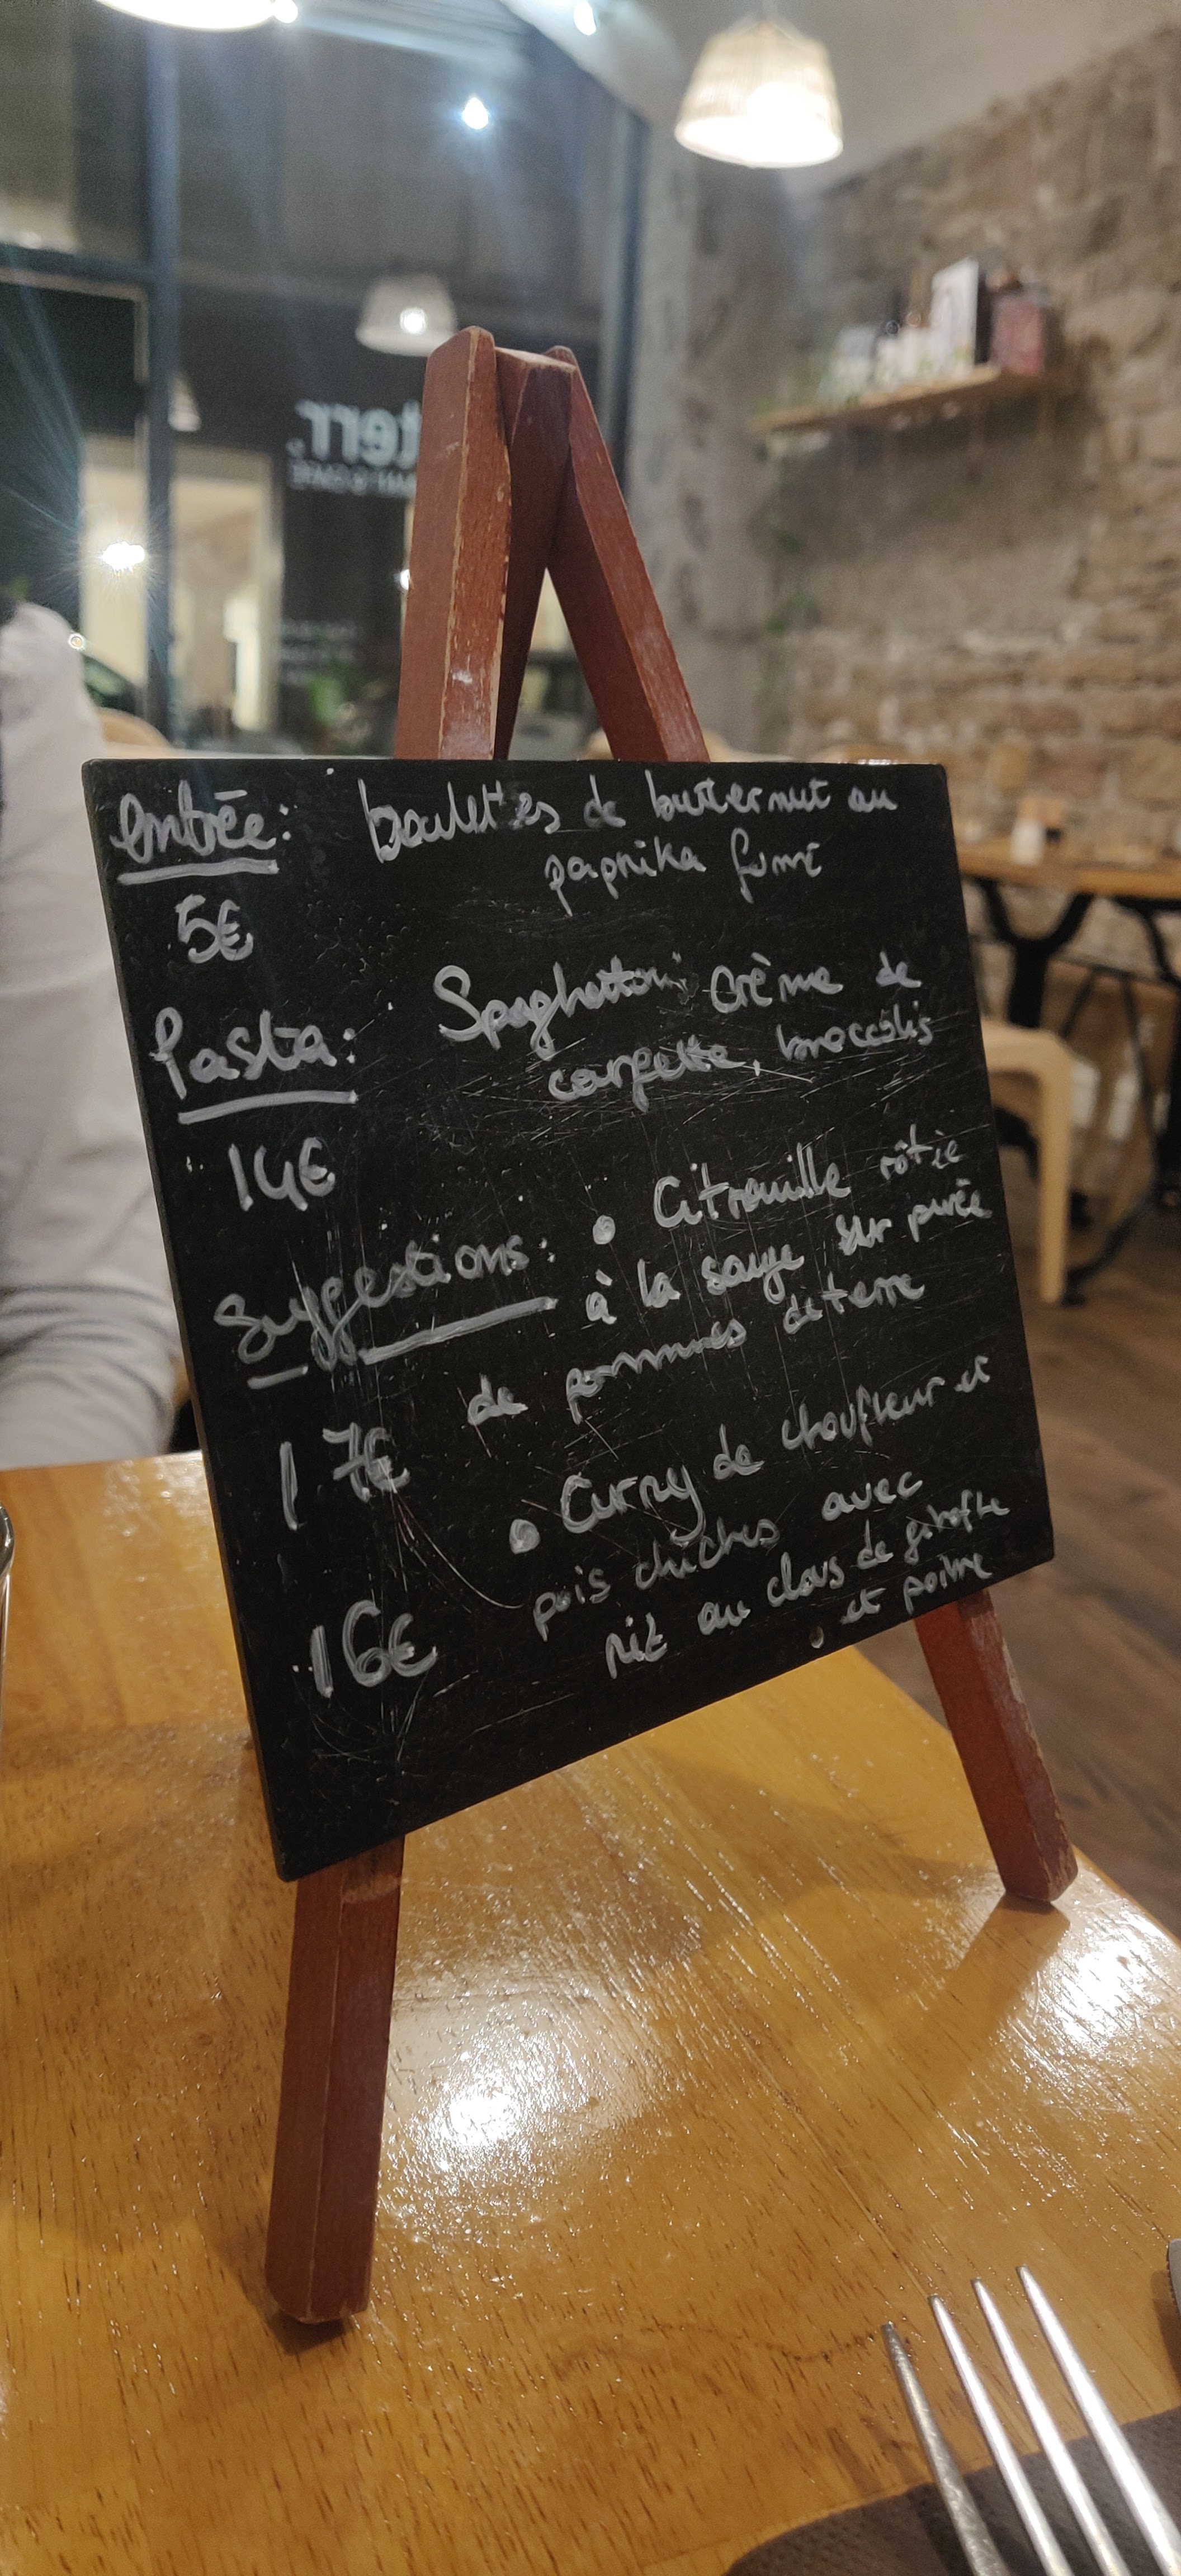 entrée: boulettes de butternut au
paprika fumé
5€
Pasta: Spaghettoni Crème de
courgette, broccolis
14€
Suggestions: • Citrouille rôtie
à la sauge sur purée
de pommes de terre
17€
• Curry de choufleur et
pois chiches avec
16€
riz au clous de girofle
et poivre
terr.